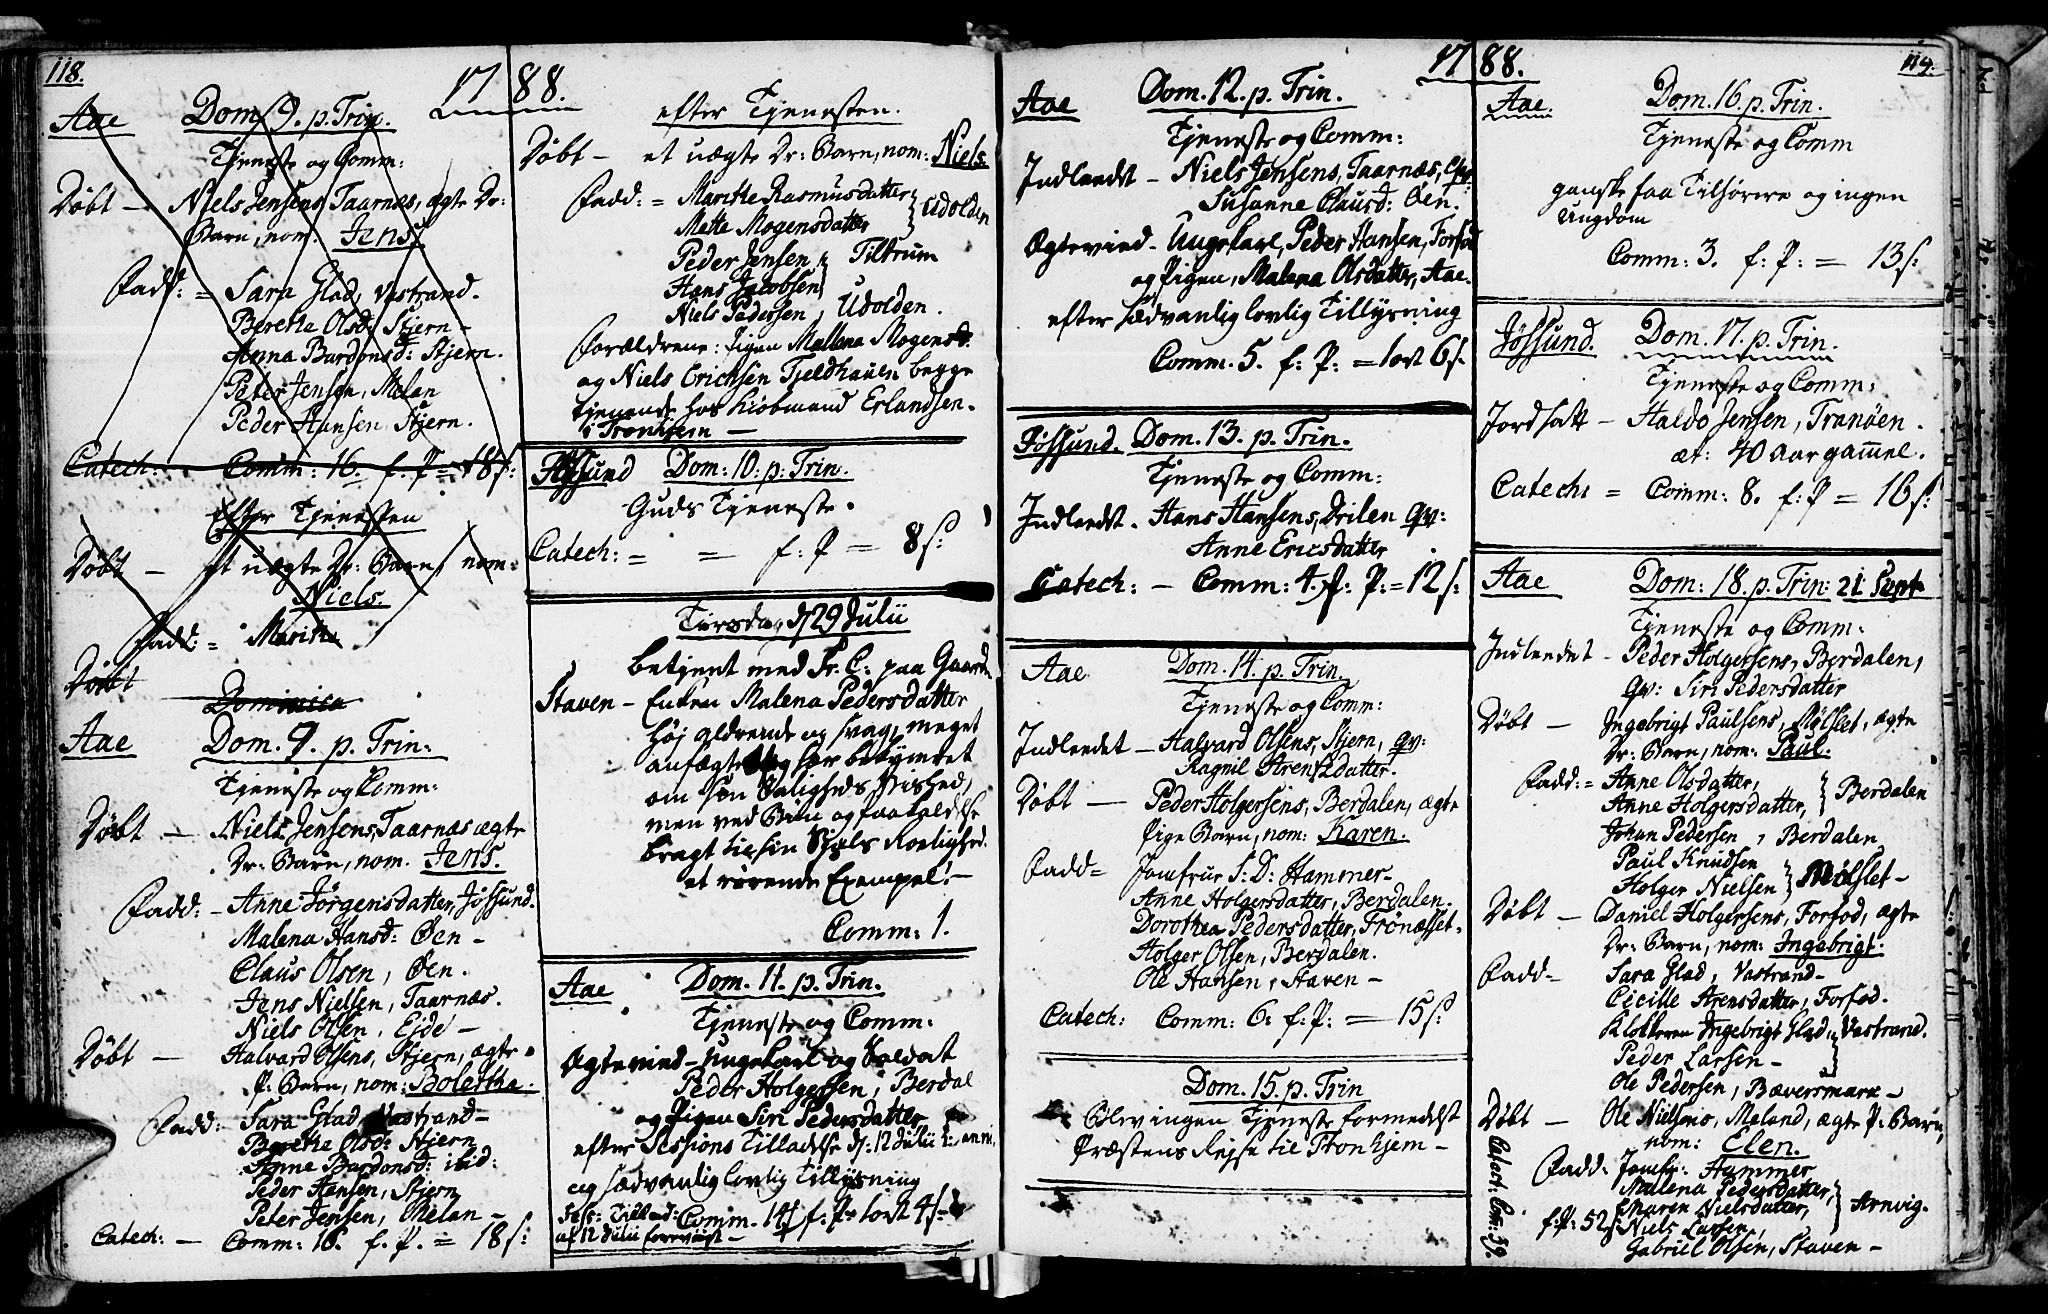 118.
1788.
Aae Dom. 9. p. Trin.
Tjeneste og Comm:
Døbt - Niels Jensens, Taarnæs, ægte Dr:
Barn, nom: Jens.
Fadd: = Sara Glad, Vastrand.
Beretha Olsd: Stjern -
Anna Bardonsd: Stjern.
Peter Jensen, Melan
Peder Hansen, Stjern.
Catech: Comm: 16. f. P = 18 s:
Efter Tjenesten
Døbt - et uægte Dr: Barn, nom:
Niels.
Fadd: = Maritha
Døbt
Dominica
Aae Dom. 9. p. Trin:
Tjeneste og Comm:
Døbt - Niels Jensens, Taarnæs ægte
Dr: Barn, nom. Jens.
Fadd: - Anne Jørgensdatter, Jössund.
Malena Hansd: Øen -
Claus Olsen, Øen.
Jens Nielsen, Taarnæs.
Niels Olsen, Ejde -
Døbt - Halvard Olsens, Stjern, ægte
P: Barn, nom: Boletha.
Fadd: Sara Glad, Vastrand -
Beretha Olsd: Stjern
Anne Bardonsd: ibid:
Peder Hansen, Stjern
Peter Jensen, Melan -
Catech: - Comm: 16. f. P. = 18 s:
efter Tjenesten.
Døbt - et uægte Dr: Barn, nom: Niels.
Fadd: = Marithe Rasmusdatter
Mette Mogensdatter } Udolden
Peder Jensen
Hans Jacobsen } Tiltrum
Niels Pedersen, Udolden.
Forældrene: Pigen Mallena Mogensd:
og Niels Erichsen Fjeldhauen begge
tjenende hos Kiöbmand Erlandsen.
i Tronhiem -
Jössund Dom: 10. p. Trin.
Guds Tjeneste.
Catech: = = f: P = 8 s:
Tirsdag d 29 Julii
betjent med Sr. C: paa Gaarden
Staven - Enken Malena Pedersdatter
høj aldrende og svag, meget
anfægtet og saer bekymret
om sin Saligheds Vished,
men ved Bön og paakaldelse
bragt til sin Sjæls Roelighed.
et rörende Exempel. -
Comm: 1.
Aae Dom. 11. p. Trin.
Tjeneste og Comm:
Ægtevied - Ungekarl og Soldat
Peder Holgersen, Berdal
og Pigen Siri Pedersdatter
efter Sessions Tilladelse d: 12 Julii
og sædvanlig lovlig Tillysning
Sess: Tillad: Comm. 14 f: P = 1 ort 4 s
af 12 Julii foreviist -
1788.
119.
Aae Dom. 12. p. Trin.
Tjeneste og Comm:
Indleedt - Niels Jensens, Taarnæs, Qv:
Susanne Clausd: Øen.
Ægtevied - Ungekarl, Peder Hansen, Forfod
og Pigen, Malena Olsdatter, Aae.
efter sædvanlig lovlig Tillysning
Comm. 5. f: P: = 1 ort 6 s.
Jössund. Dom. 13. p. Trin.
Tjeneste og Comm:
Indleedt. Hans Hansens, Drilen Qv:
Anne Ericsdatter
Catech: - Comm: 4. f: P: = 12 s:
Aae Dom. 14. p. Trin.
Tjeneste og Comm:
Indleedet - Halvard Olsens, Stjern, Qv:
Ragnil Arentzdatter.
Døbt - Peder Holgersens, Berdalen, ægte
Pige Barn, nom: Karen.
Fadd = Jomfrue S: D: Hammer -
Anne Holgersdatter, Berdalen.
Dorothea Pedersdatter, Frönæsset.
Holger Olsen, Berdalen.
Ole Hansen, Staven -
Catech: Comm: 6: f: P: = 15 s:
Dom. 15. p. Trin
Blev ingen Tjeneste formedelst
Præstens Rejse til Tronhjem -
Aae. Dom. 16. p. Trin.
Tjeneste og Comm
ganske faa Tilhørere og ingen
Ungdom
Comm: 3. f: P: = 13 s:
Jössund. Dom. 17. p. Trin.
Tjeneste og Comm:
Jordsatt - Haldo Jensen, Tranöen.
æt: 40 Aar gammel.
Catech: = Comm: 8. f: P = 16 s:
Aae Dom: 18. p. Trin: 21 Sept
Tjeneste og Comm:
Indleedet - Peder Holgersens, Berdalen,
Qv: Siri Pedersdatter
Døbt - Ingebrigt Paulsens, Mölslet, ægte
Dr: Barn, nom: Paul.
Fadd: = Anne Olsdatter,
Anne Holgersdatter, } Berdalen
Johan Pedersen, Berdalen
Paul Knudsen
Holger Nielsen } Mölslet -
Døbt - Daniel Holgersens, Forfod, ægte
Dr: Barn, nom: Ingebrigt.
Fadd - Sara Glad, Vastrand -
Cicille Arensdatter, Forfod.
Klokkeren Ingebrigt Glad, Vastrand.
Peder Larsen -
Ole Pedersen, Bæversmark -
Døbt - Ole Nielsens, Meland, ægte P: Barn,
nom: Elen.
Fadd: Jomfr: Hammer
Malena Pedersdatter,
Maren Nielsdatter, } Arnvig.
f: P: 52 s: Niels Larsen,
Gabriel Olsen, Staven -
Com: 39.